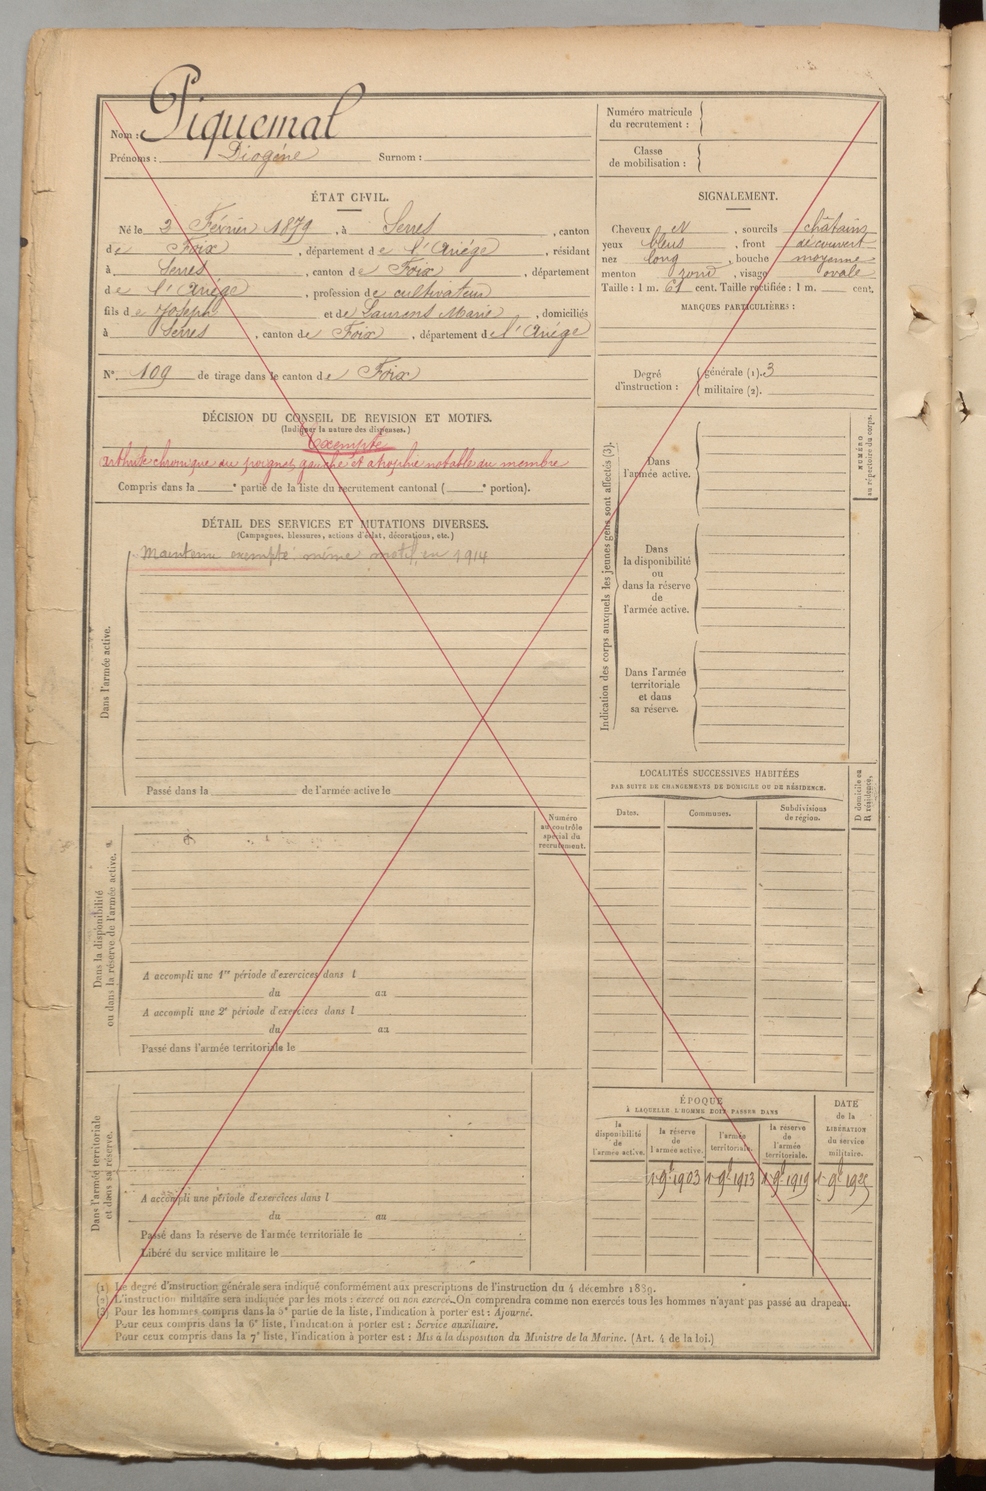 Nom : Piquemal
Prénoms : Diogène Surnom :
Numéro matricule
du recrutement :
Classe
de mobilisation :
ÉTAT CIVIL.
Né le 2 Février 1879, à Serres, canton
de Foix, département de l'Ariége, résidant
à Serres, canton de Foix, département
de l'Ariége, profession de cultivateur
fils de Joseph et de Laurens Marie, domiciliés
à Serres, canton de Foix, département de l'Ariége
N° 109 de tirage dans le canton de Foix
SIGNALEMENT.
Cheveux N, sourcils châtains
yeux bleus, front découvert
nez long, bouche moyenne
menton rond, visage ovale
Taille : 1 m. 61 cent. Taille rectifiée : 1 m. cent.
MARQUES PARTICULIÈRES :
Degré
d'instruction :
générale (1). 3
militaire (2).
DÉCISION DU CONSEIL DE REVISION ET MOTIFS.
(Indiquer la nature des dispenses.)
Exempté
arthrite chronique du poignet gauche et atrophie notable du membre
Compris dans la e partie de la liste du recrutement cantonal ( e portion).
DÉTAIL DES SERVICES ET MUTATIONS DIVERSES.
(Campagnes, blessures, actions d'éclat, décorations, etc.)
Maintenu exempté : même motif, en 1914
Dans l'armée active.
Passé dans la de l'armée active le
Indication des corps auxquels les jeunes gens sont affectés (3).
NUMÉRO
au répertoire du corps.
Dans
l'armée active.
Dans
la disponibilité
ou
dans la réserve
de
l'armée active.
Dans l'armée
territoriale
et dans
sa réserve.
LOCALITÉS SUCCESSIVES HABITÉES
PAR SUITE DE CHANGEMENTS DE DOMICILE OU DE RÉSIDENCE.
Dates.
Communes.
Subdivisions
de région.
D domicile ou
R résidence.
Numéro
au contrôle
spécial du
recrutement.
Dans la disponibilité
ou dans la réserve de l'armée active.
A accompli une 1re période d'exercices dans l
du au
A accompli une 2e période d'exercices dans l
du au
Passé dans l'armée territoriale le
Dans l'armée territoriale
et dans sa réserve.
A accompli une période d'exercices dans l
du au
Passé dans la réserve de l'armée territoriale le
Libéré du service militaire le
ÉPOQUE
À LAQUELLE L'HOMME DOIT PASSER DANS
la
disponibilité
de
l'armée active.
la réserve
de
l'armée active.
l'armée
territoriale.
la réserve
de
l'armée
territoriale.
DATE
de la
LIBÉRATION
du service
militaire.
1 9bre 1903 1 9bre 1913 1 9bre 1919 1 9bre 1925
(1) Le degré d'instruction générale sera indiqué conformément aux prescriptions de l'instruction du 4 décembre 1889.
(2) L'instruction militaire sera indiquée par les mots : exercé ou non exercé. On comprendra comme non exercés tous les hommes n'ayant pas passé au drapeau.
(3) Pour les hommes compris dans la 5e partie de la liste, l'indication à porter est : Ajourné.
Pour ceux compris dans la 6e liste, l'indication à porter est : Service auxiliaire.
Pour ceux compris dans la 7e liste, l'indication à porter est : Mis à la disposition du Ministre de la Marine. (Art. 4 de la loi.)